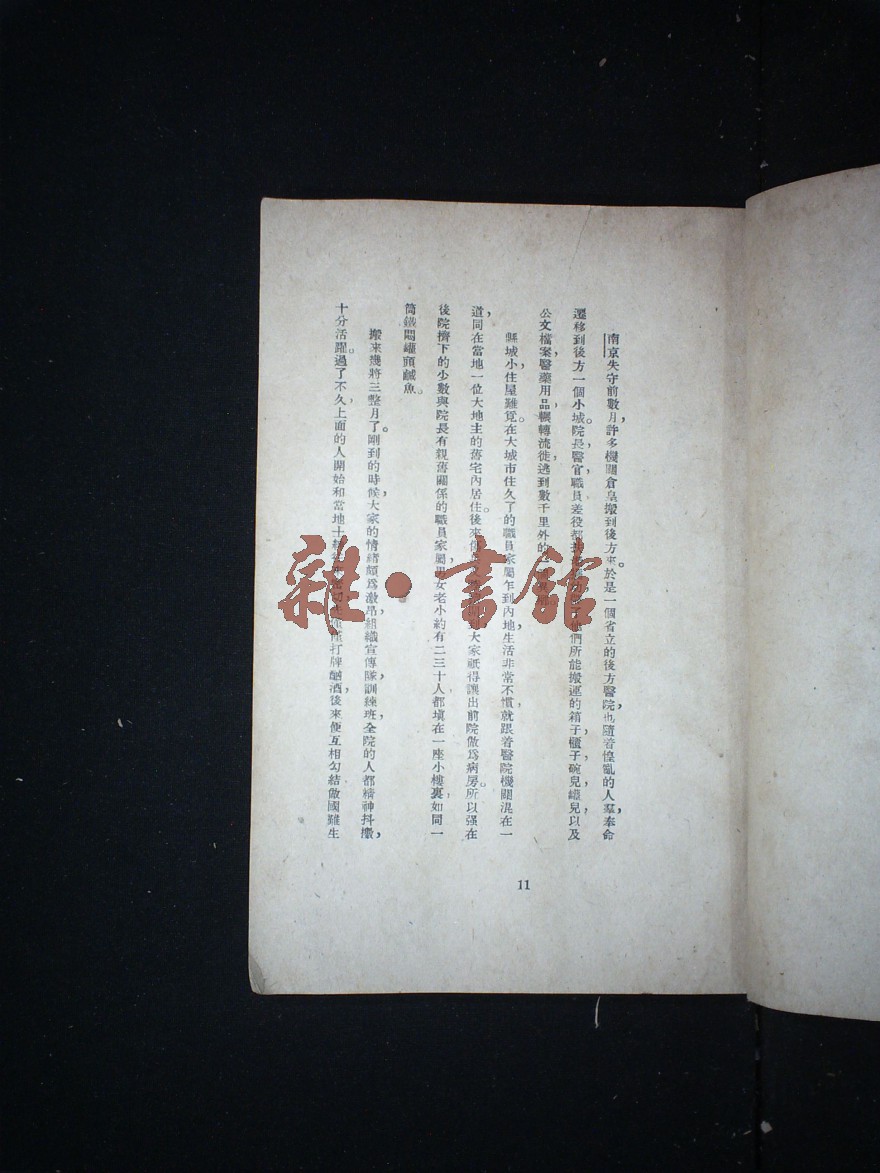 南京失守前數月，許多機關倉皇搬到後方來。於是一個省立的後方醫院，也隨着惶亂的人羣奉命
遷移到後方一個小城。院長，醫官，職員，差役都 們所能搬運的箱子，櫃子，碗兒，罐兒，以及
公文檔案，醫藥用品，輾轉流徙，逃到數千里外的
縣城小，住屋難覓。在大城市住久了的職員家屬乍到內地，生活非常不慣，就跟着醫院機關混在一
道，同在當地一位大地主的舊宅內居住。後來 大家祇得讓出前院做爲病房。所以强在
後院擠下的少數與院長有親舊關係的職員家屬，男女老小約有二三十人，都塡在一座小樓裏，如同一
筒鐵悶罐頭鹹魚。
搬來幾將三整月了。剛到的時候，大家的情緒頗爲激昂，組織宣傳隊，訓練班，全院的人都精神抖擻，
十分活躍。過了不久，上面的人開始和當地士紳 打牌酗酒，後來便互相勾結，做國難生
11
雜·書館